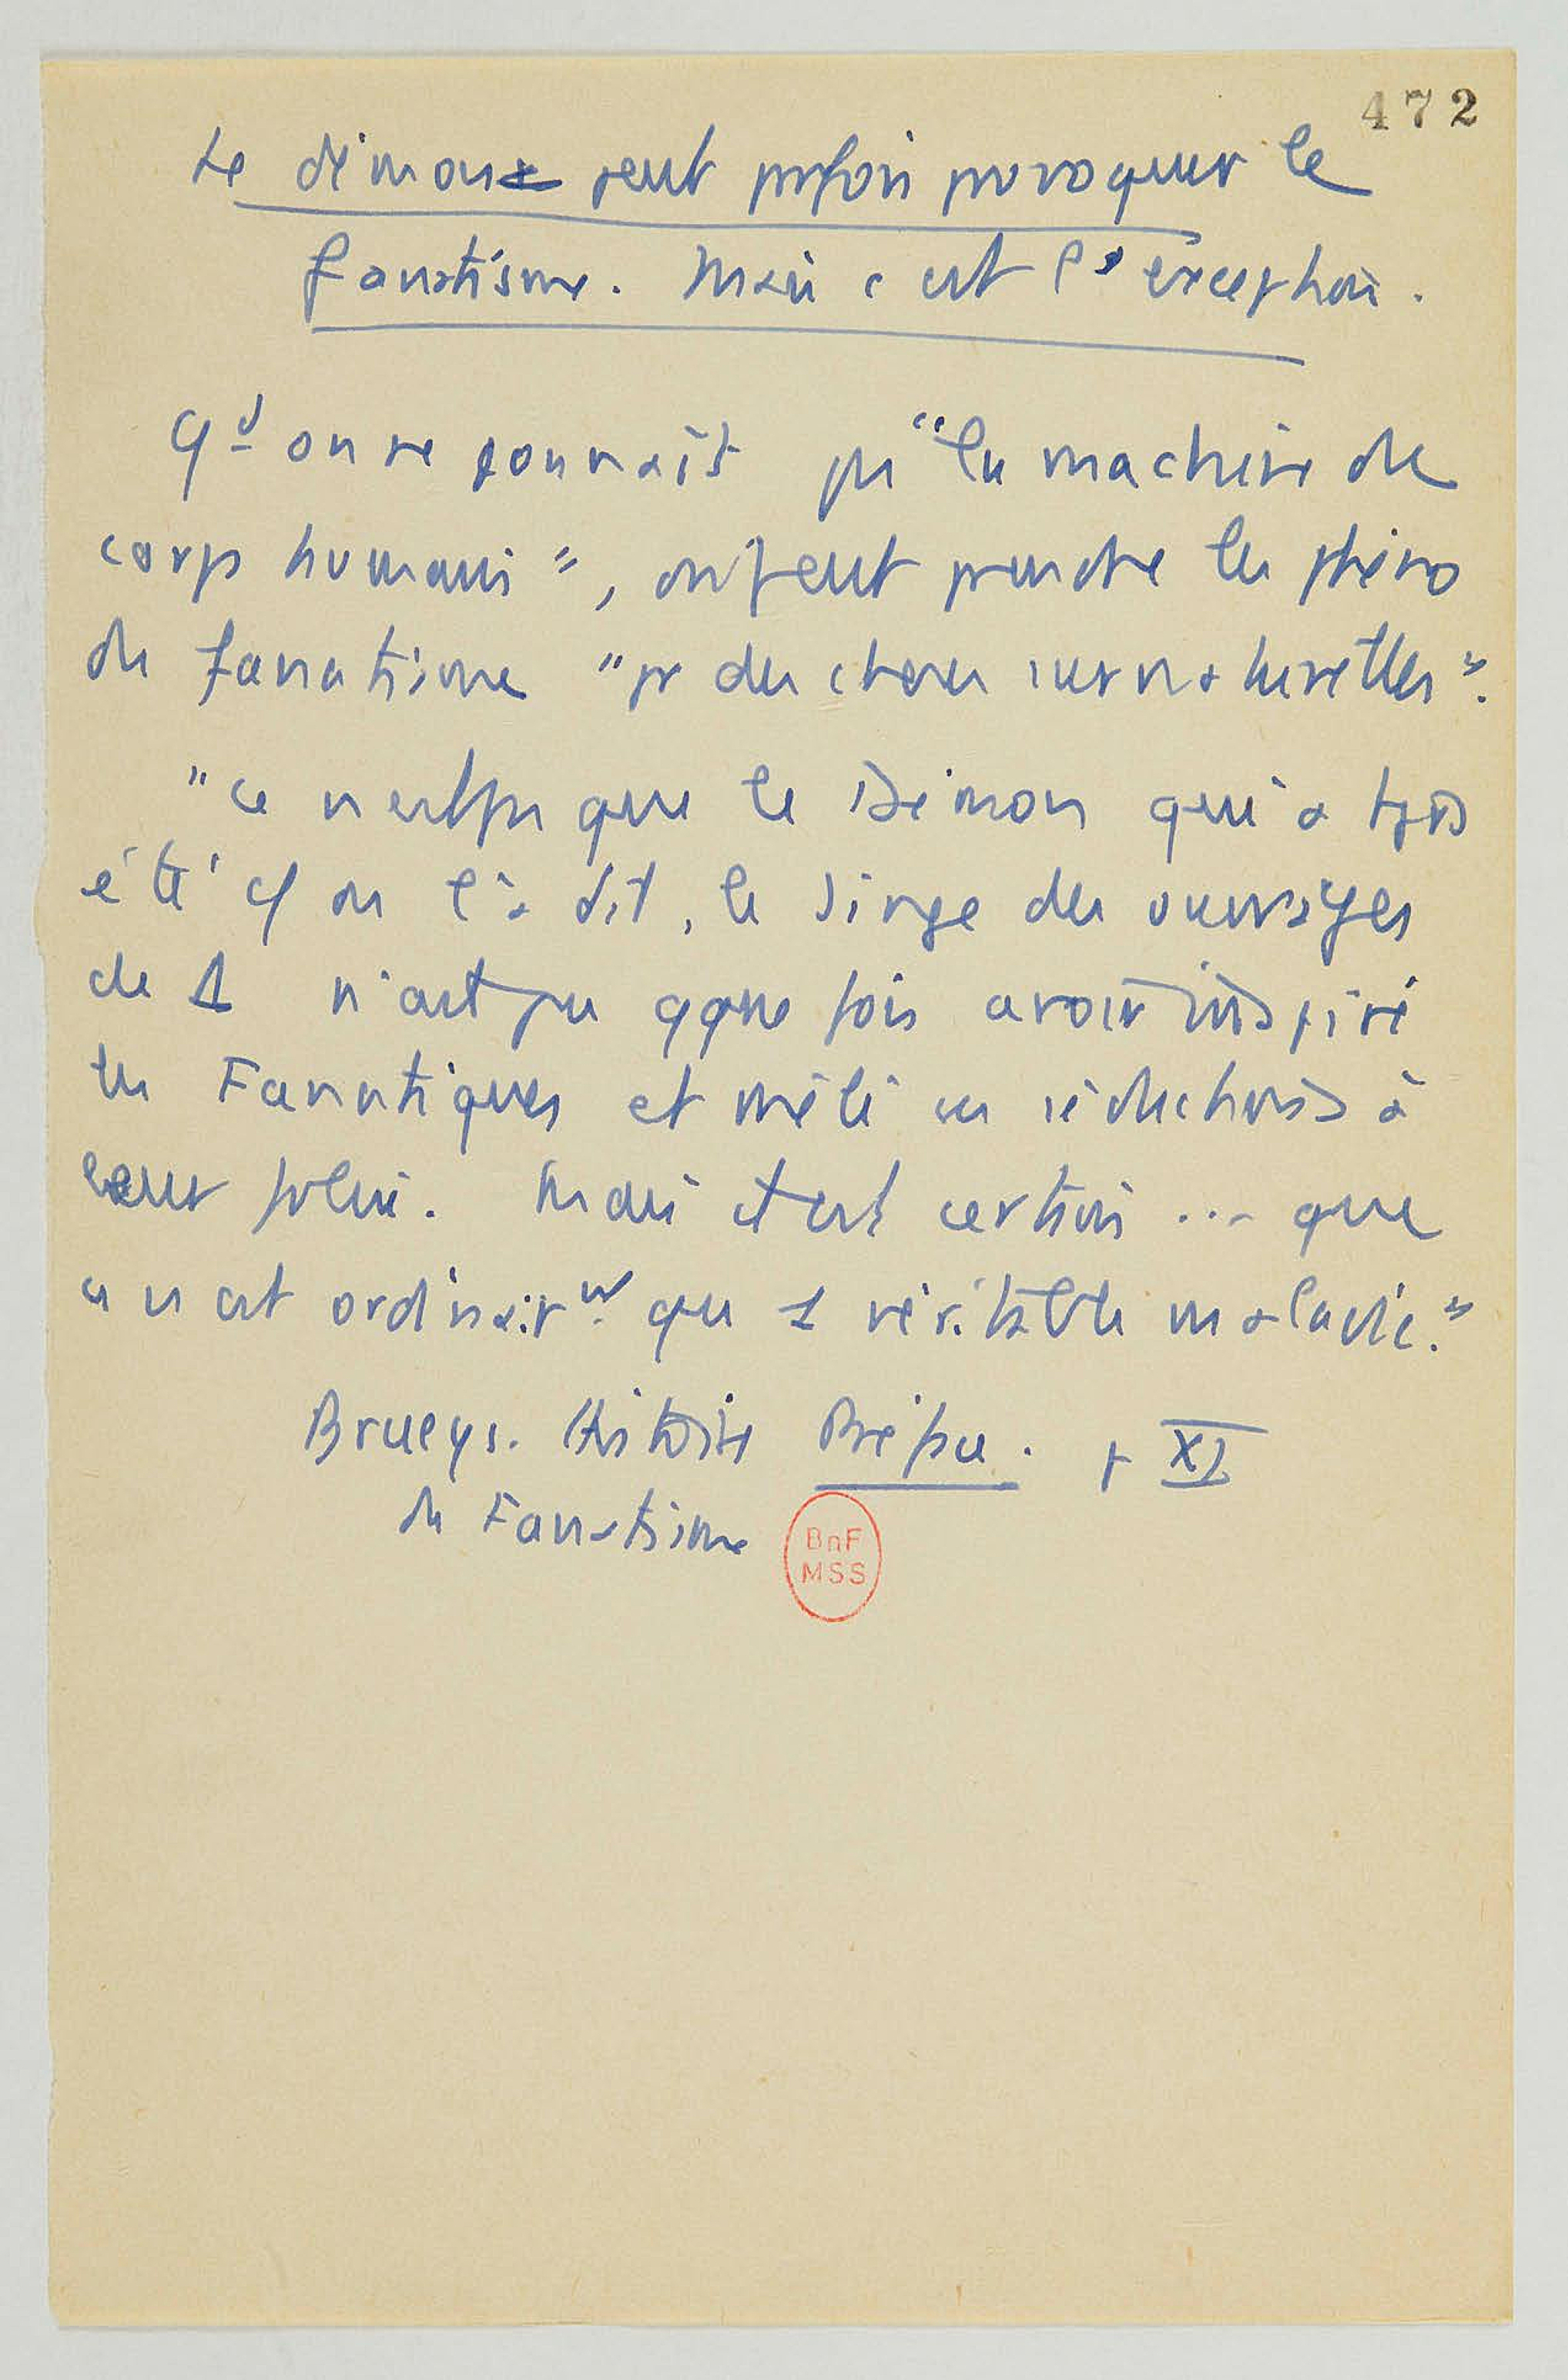 472
Le démon peut parfois provoquer le
fanatisme. Mais c'est l'exception.
Qd on ne connaît pas "la machine du
corps humain", on peut prendre les phéno
du fanatisme "pr des choses surnaturelles".
"ce n'est pas que le Démon qui a tjrs
été cf on l'a dit, le singe des ouvrages
de n'ait pu qque fois avoir inspiré
les Fanatiques et mêlé ses séductions à
leur folie. Mais il est certain ... que
ce n'est ordinairt que 1 véritable maladie."
Brueys. Histoire Préface. p XI
du Fanatisme
BnF
MSS